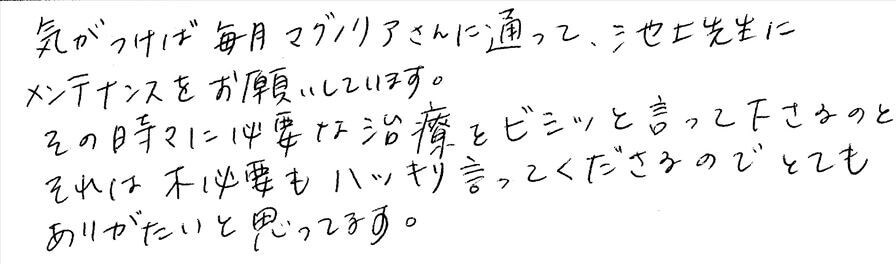 気がつけば毎月マグノリアさんに通って、池上先生に
メンテナンスをお願いしています。
その時々に必要な治療をビシッと言って下さるのと
それは不必要もハッキリ言ってくださるのでとても
ありがたいと思ってます。